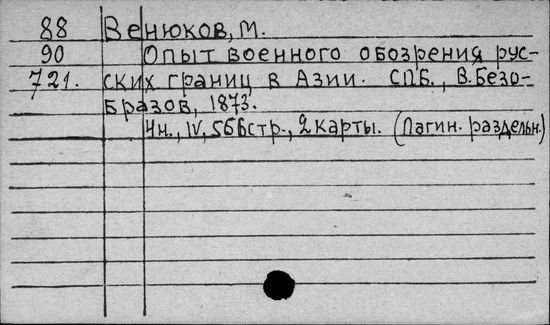 88 Венюков, М.
90 Опыт военного обозрения рус-
721. ских границ в Азии. СПБ., В.Безо-
бразов, 1873.
4н., IV, 566стр., 2 карты. (Пагин. раздельн.)